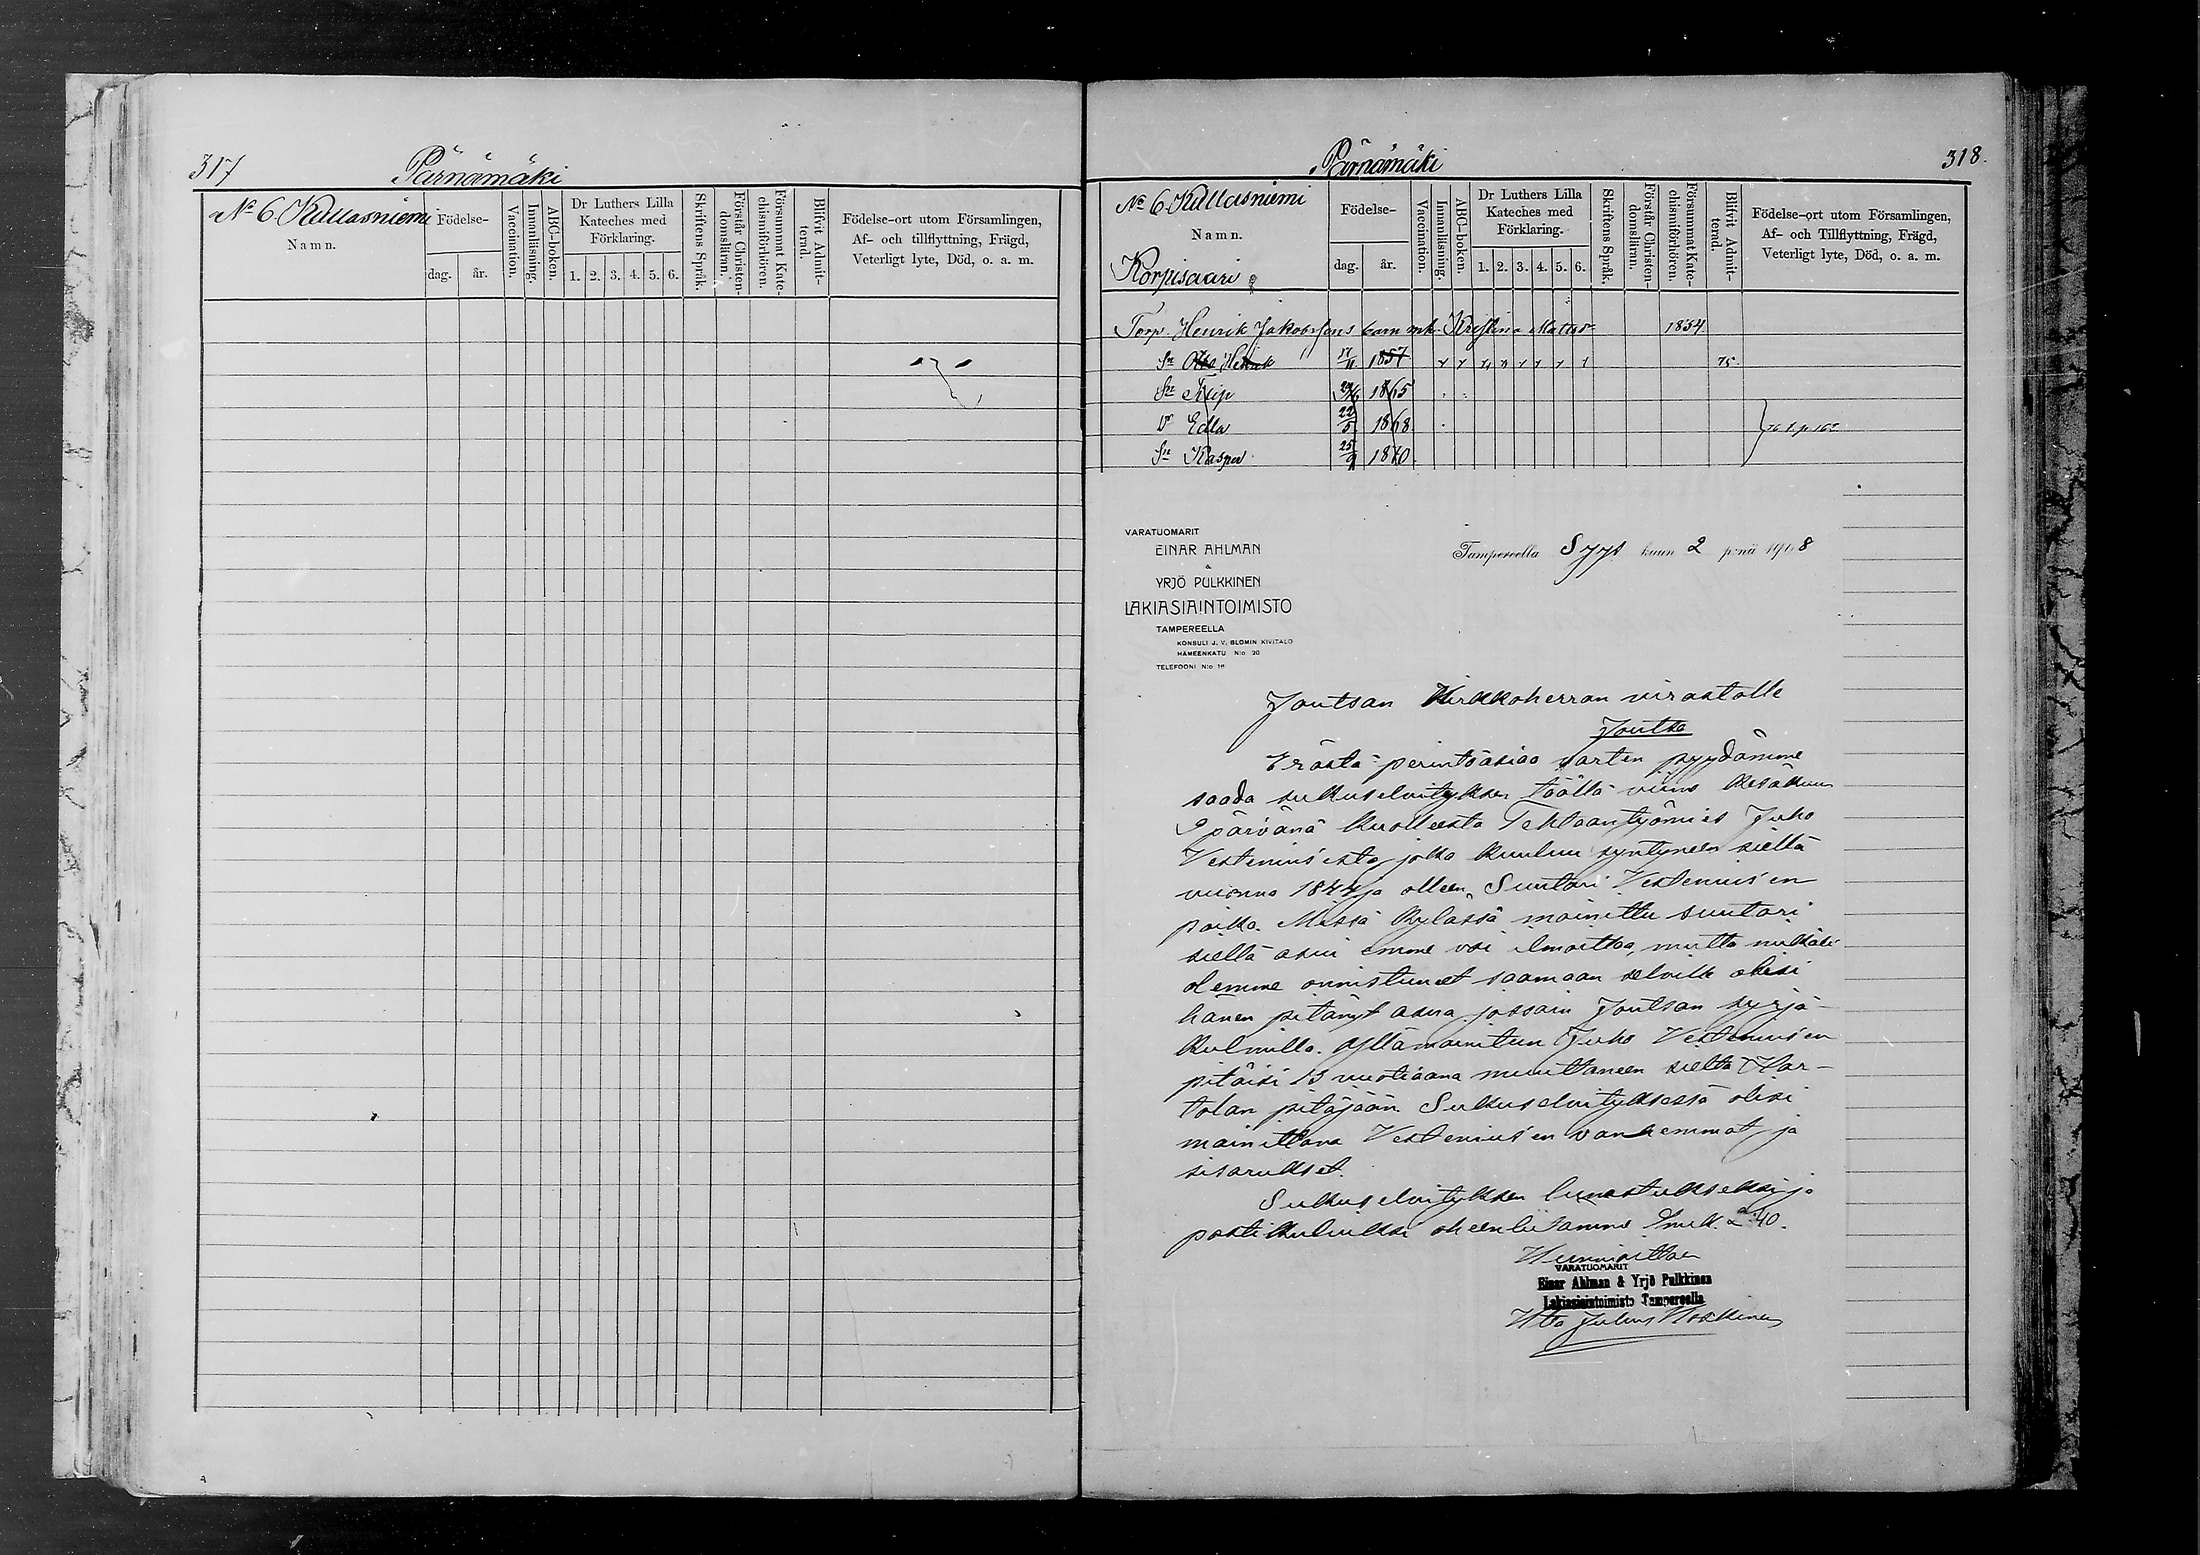 317
Pärnämäki
No 6 Kallasniemi
Namn.
Födelse-
dag.
år.
Vaccination.
Innanläsning.
ABC-boken.
Dr Luthers Lilla
Kateches med
Förklaring.
1. 2. 3. 4. 5. 6.
Skriftens Språk.
Förstår Christen-
domsläran.
Försummat Kate-
chismiförhören.
Blifvit Admit-
terad.
Födelse-ort utom Församlingen,
Af- och tillflyttning, Frägd,
Veterligt lyte, Död, o. a. m.
Pärnämäki
318.
No 6 Kallasniemi
Namn.
Korpisaari
Födelse-
dag.
år.
Vaccination.
Innanläsning.
ABC-boken.
Dr Luthers Lilla
Kateches med
Förklaring.
1. 2. 3. 4. 5. 6.
Skriftens Språk.
Förstår Christen-
domsläran.
Försummat Kate-
chismiförhören.
Blifvit Admit-
terad.
Födelse-ort utom Församlingen,
Af- och Tillflyttning, Frägd,
Veterligt lyte, Död, o. a. m.
Torp. Henrik Jakobssons barn mh. Kristina Mattsdr 1834
Sn 17/11 1857 75.
Sn 1865
Dr Edla 22/5 1868
Sn Kasper 25/9 1870
VARATUOMARIT
EINAR AHLMAN
&
YRJÖ PULKKINEN
LAKIASIAINTOIMISTO
TAMPEREELLA
KONSULI J. V. BLOMIN KIVITALO
HÄMEENKATU N:o 20
TELEFOONI N:o 16
Tampereella Syys kuun 2 p:nä 1918
Joutsan Kirkkoherran virastolle
Joutsa
Erästä perintöasiaa varten pyydämme
saada sukuselvityksen täällä viime kesäkuun
9 päivänä kuolleesta Tehtaantyömies Juho
Vestenius'esta, joka kuuluu syntyneen siellä
vuonna 1844 ja olleen Suutari Vestenius'en
poika. Missä kylässä mainittu suutari
siellä asui emme voi ilmoittaa, mutta mikäli
olemme onnistuneet saamaan selville olisi
hänen pitänyt asua jossain Joutsan syrjä-
kulmilla. Yllämainitun Juho Vestenius'en
pitäisi 15 vuotiaana muuttaneen sieltä Har-
tolan pitäjään. Sukuselvityksessä olisi
mainittava Vestenius'en vanhemmat ja
sisarukset.
Sukuselvityksen lunastukseksi ja
postikuluiksi oheenliitämme Smk. 2:40.
Kunnioittaen
VARATUOMARIT
Einar Ahlman & Yrjö Pulkkinen
Lakiasiaintoimisto Tampereella